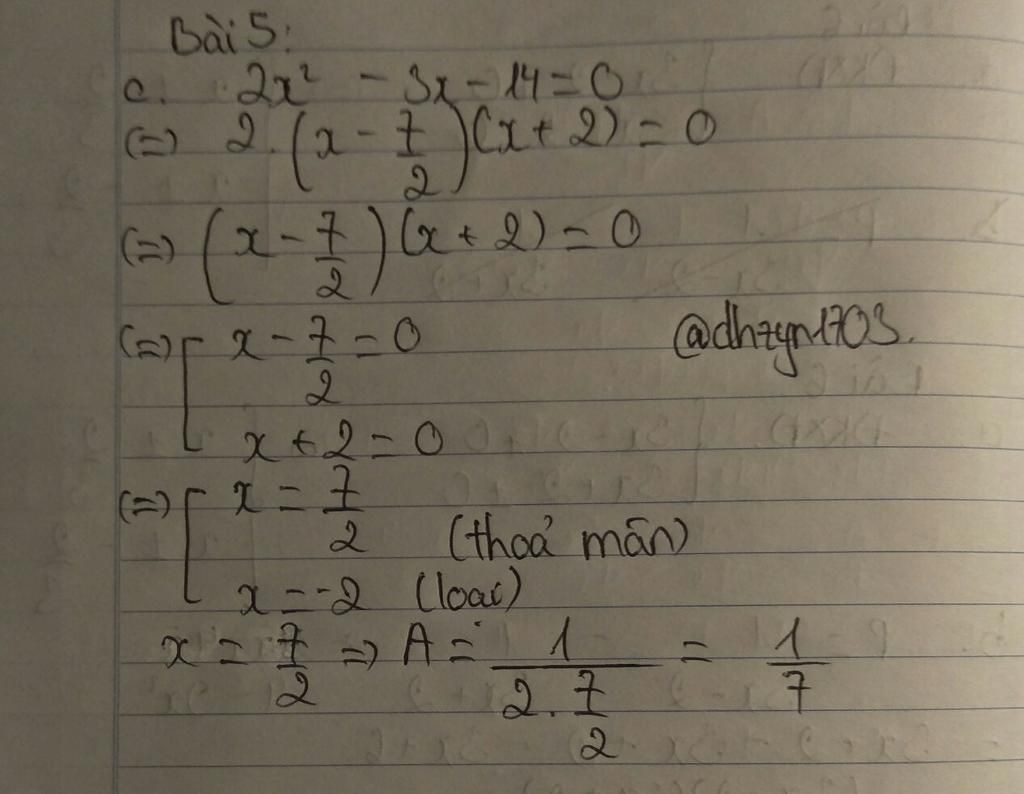 Bài 5:
c. 2x² - 3x - 14 = 0
(=) 2.(x - 7/2)(x + 2) = 0
(=) (x - 7/2)(x + 2) = 0
(=) [ x - 7/2 = 0
@dhzyn1703.
x + 2 = 0
(=) [ x = 7/2 (thoả mãn)
x = -2 (loại)
x = 7/2 => A = 1/(2 . 7/2) = 1/7